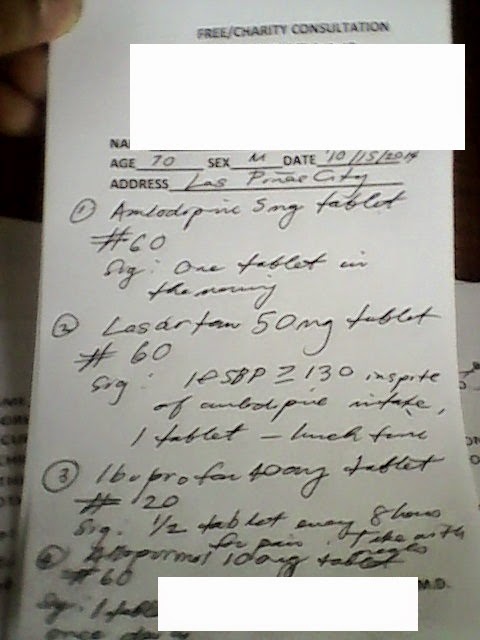 FREE/CHARITY CONSULTATION
NA
AGE 70 SEX M DATE 10/15/2014
ADDRESS Las Pinas City
① Amlodipine 5mg tablet
#60
Sig: One tablet in
the morning
② Losartan 50mg tablet
# 60
Sig: If SBP ≥ 130 inspite
of amlodipine intake,
1 tablet - lunch time
③ Ibuprofen 400mg tablet
# 20
Sig. 1/2 tablet every 8 hours
for pain. Take with
meals
④ Allopurinol 100mg tablet
#60
Sig: 1 table
once day
M.D.